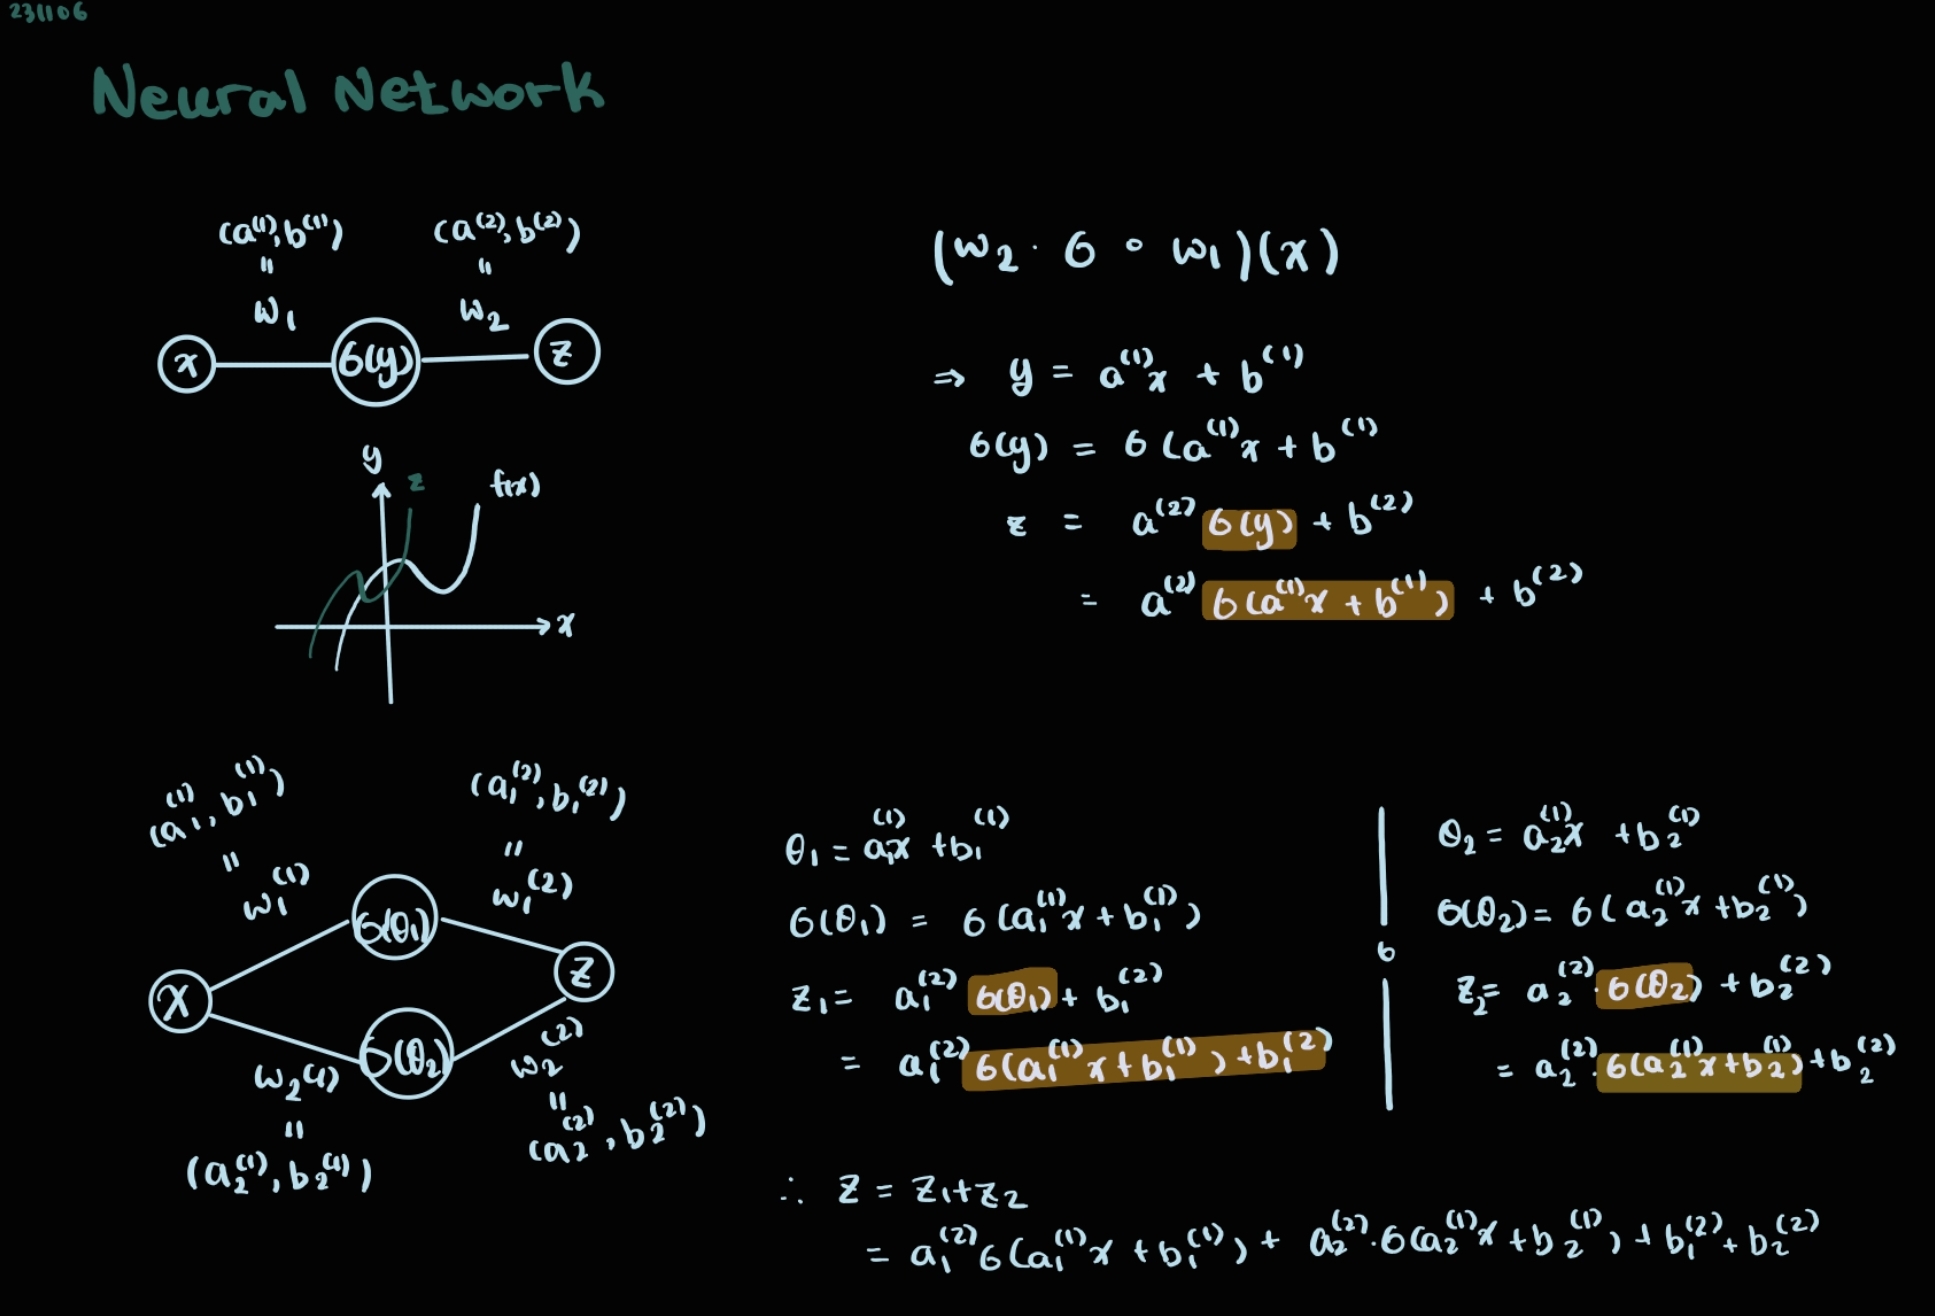 231106
Neural Network
(a⁽¹⁾, b⁽¹⁾) (a⁽²⁾, b⁽²⁾)
= =
w₁ w₂
x 6(y) z
(w₂ · 6 ∘ w₁)(x)
⇒ y = a⁽¹⁾x + b⁽¹⁾
6(y) = 6(a⁽¹⁾x + b⁽¹⁾
z = a⁽²⁾ 6(y) + b⁽²⁾
= a⁽²⁾ 6(a⁽¹⁾x + b⁽¹⁾) + b⁽²⁾
y z f(x)
x
(a₁⁽¹⁾, b₁⁽¹⁾) (a₁⁽²⁾, b₁⁽²⁾)
= =
w₁⁽¹⁾ w₁⁽²⁾
6(θ₁)
X z
6(θ₂)
w₂⁽¹⁾ w₂⁽²⁾
= =
(a₂⁽¹⁾, b₂⁽¹⁾) (a₂⁽²⁾, b₂⁽²⁾)
θ₁ = a₁⁽¹⁾x + b₁⁽¹⁾
6(θ₁) = 6(a₁⁽¹⁾x + b₁⁽¹⁾)
z₁ = a₁⁽²⁾ 6(θ₁) + b₁⁽²⁾
= a₁⁽²⁾ 6(a₁⁽¹⁾x + b₁⁽¹⁾) + b₁⁽²⁾
6
θ₂ = a₂⁽¹⁾x + b₂⁽¹⁾
6(θ₂) = 6(a₂⁽¹⁾x + b₂⁽¹⁾)
z₂ = a₂⁽²⁾ · 6(θ₂) + b₂⁽²⁾
= a₂⁽²⁾ · 6(a₂⁽¹⁾x + b₂⁽¹⁾) + b₂⁽²⁾
∴ z = z₁ + z₂
= a₁⁽²⁾ 6(a₁⁽¹⁾x + b₁⁽¹⁾) + a₂⁽²⁾ · 6(a₂⁽¹⁾x + b₂⁽¹⁾) + b₁⁽²⁾ + b₂⁽²⁾